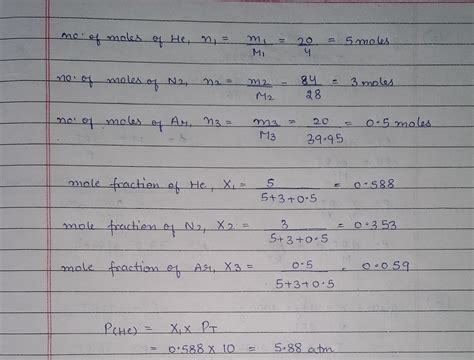 no. of moles of He, n₁ = m₁/M₁ = 20/4 = 5 moles
no. of moles of N₂, n₂ = m₂/M₂ - 84/28 = 3 moles
no. of moles of Ar, n₃ = m₃/M₃ = 20/39.95 = 0.5 moles
mole fraction of He, X₁ = 5/5+3+0.5 = 0.588
mole fraction of N₂, X₂ = 3/5+3+0.5 = 0.353
mole fraction of Ar, X₃ = 0.5/5+3+0.5 = 0.059
P(He) = X₁ x P_T
= 0.588 x 10 = 5.88 atm